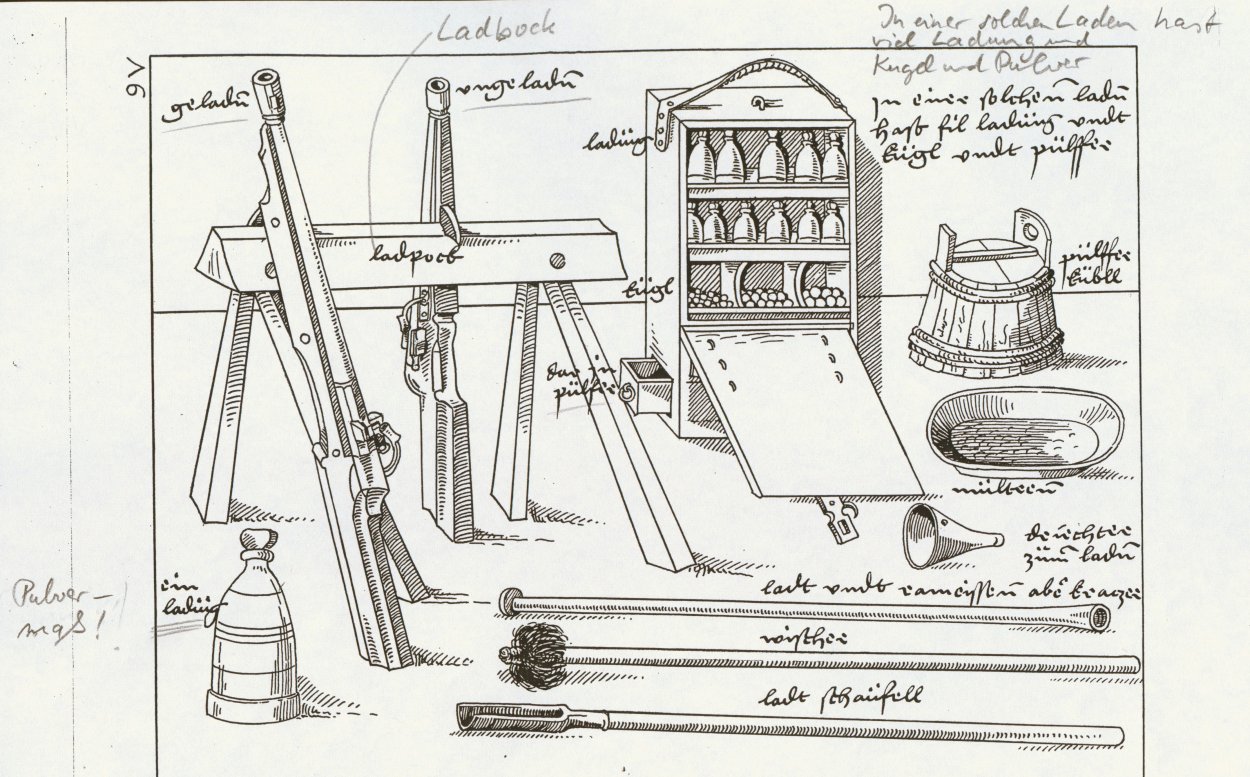 Ladbock
In einer solchen Laden hast
viel Ladung und
Kugel und Pulver
9V
geladn̄
vngeladn̄
ladüng
Jn einer solchen̄ ladn̄
hast fil ladüng vndt
kügl vndt pülffer
ladpock
kügl
pülffer
kübll
dar in
pülffer
mülteren̄
dr̈ichter
zum̄ ladn̄
Pulver-
maß!
ein
ladüg
ladt vndt rameissen̄ abe kraczer
wischer
ladt schaüfell